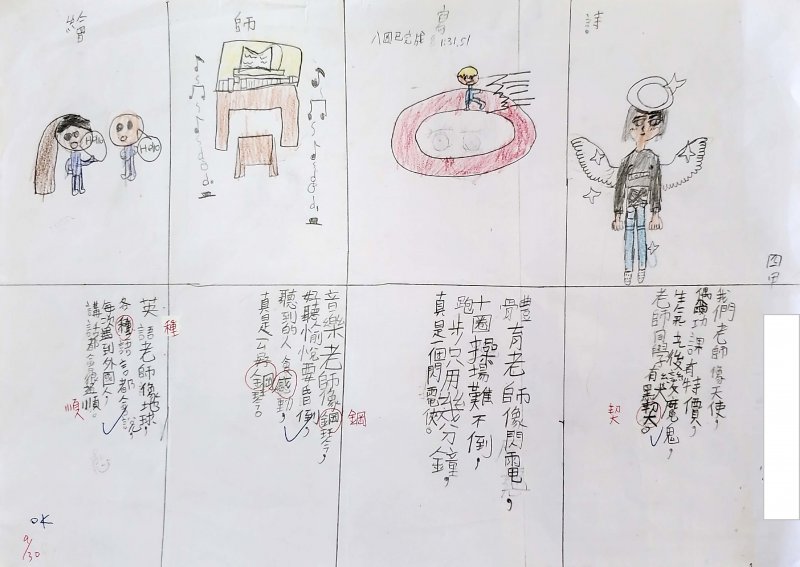 詩
寫
師
繪
八圖已完成
Hello
Hello
四甲
我們老師像天使，
偶爾功課有特價，
生氣之後變魔鬼，
老師同學有默契。
契
體育老師像閃電，
十圈操場難不倒，
跑步只用幾分鐘，
真是一個閃電俠。
音樂老師像鋼琴，
好聽愉悅要昏倒，
聽到的人會感動，
真是一台好鋼琴。
鋼
英語老師像地球，
各種語言都會說，
每次遇到外國人，
講話都會很順。
種
順
OK
9/30